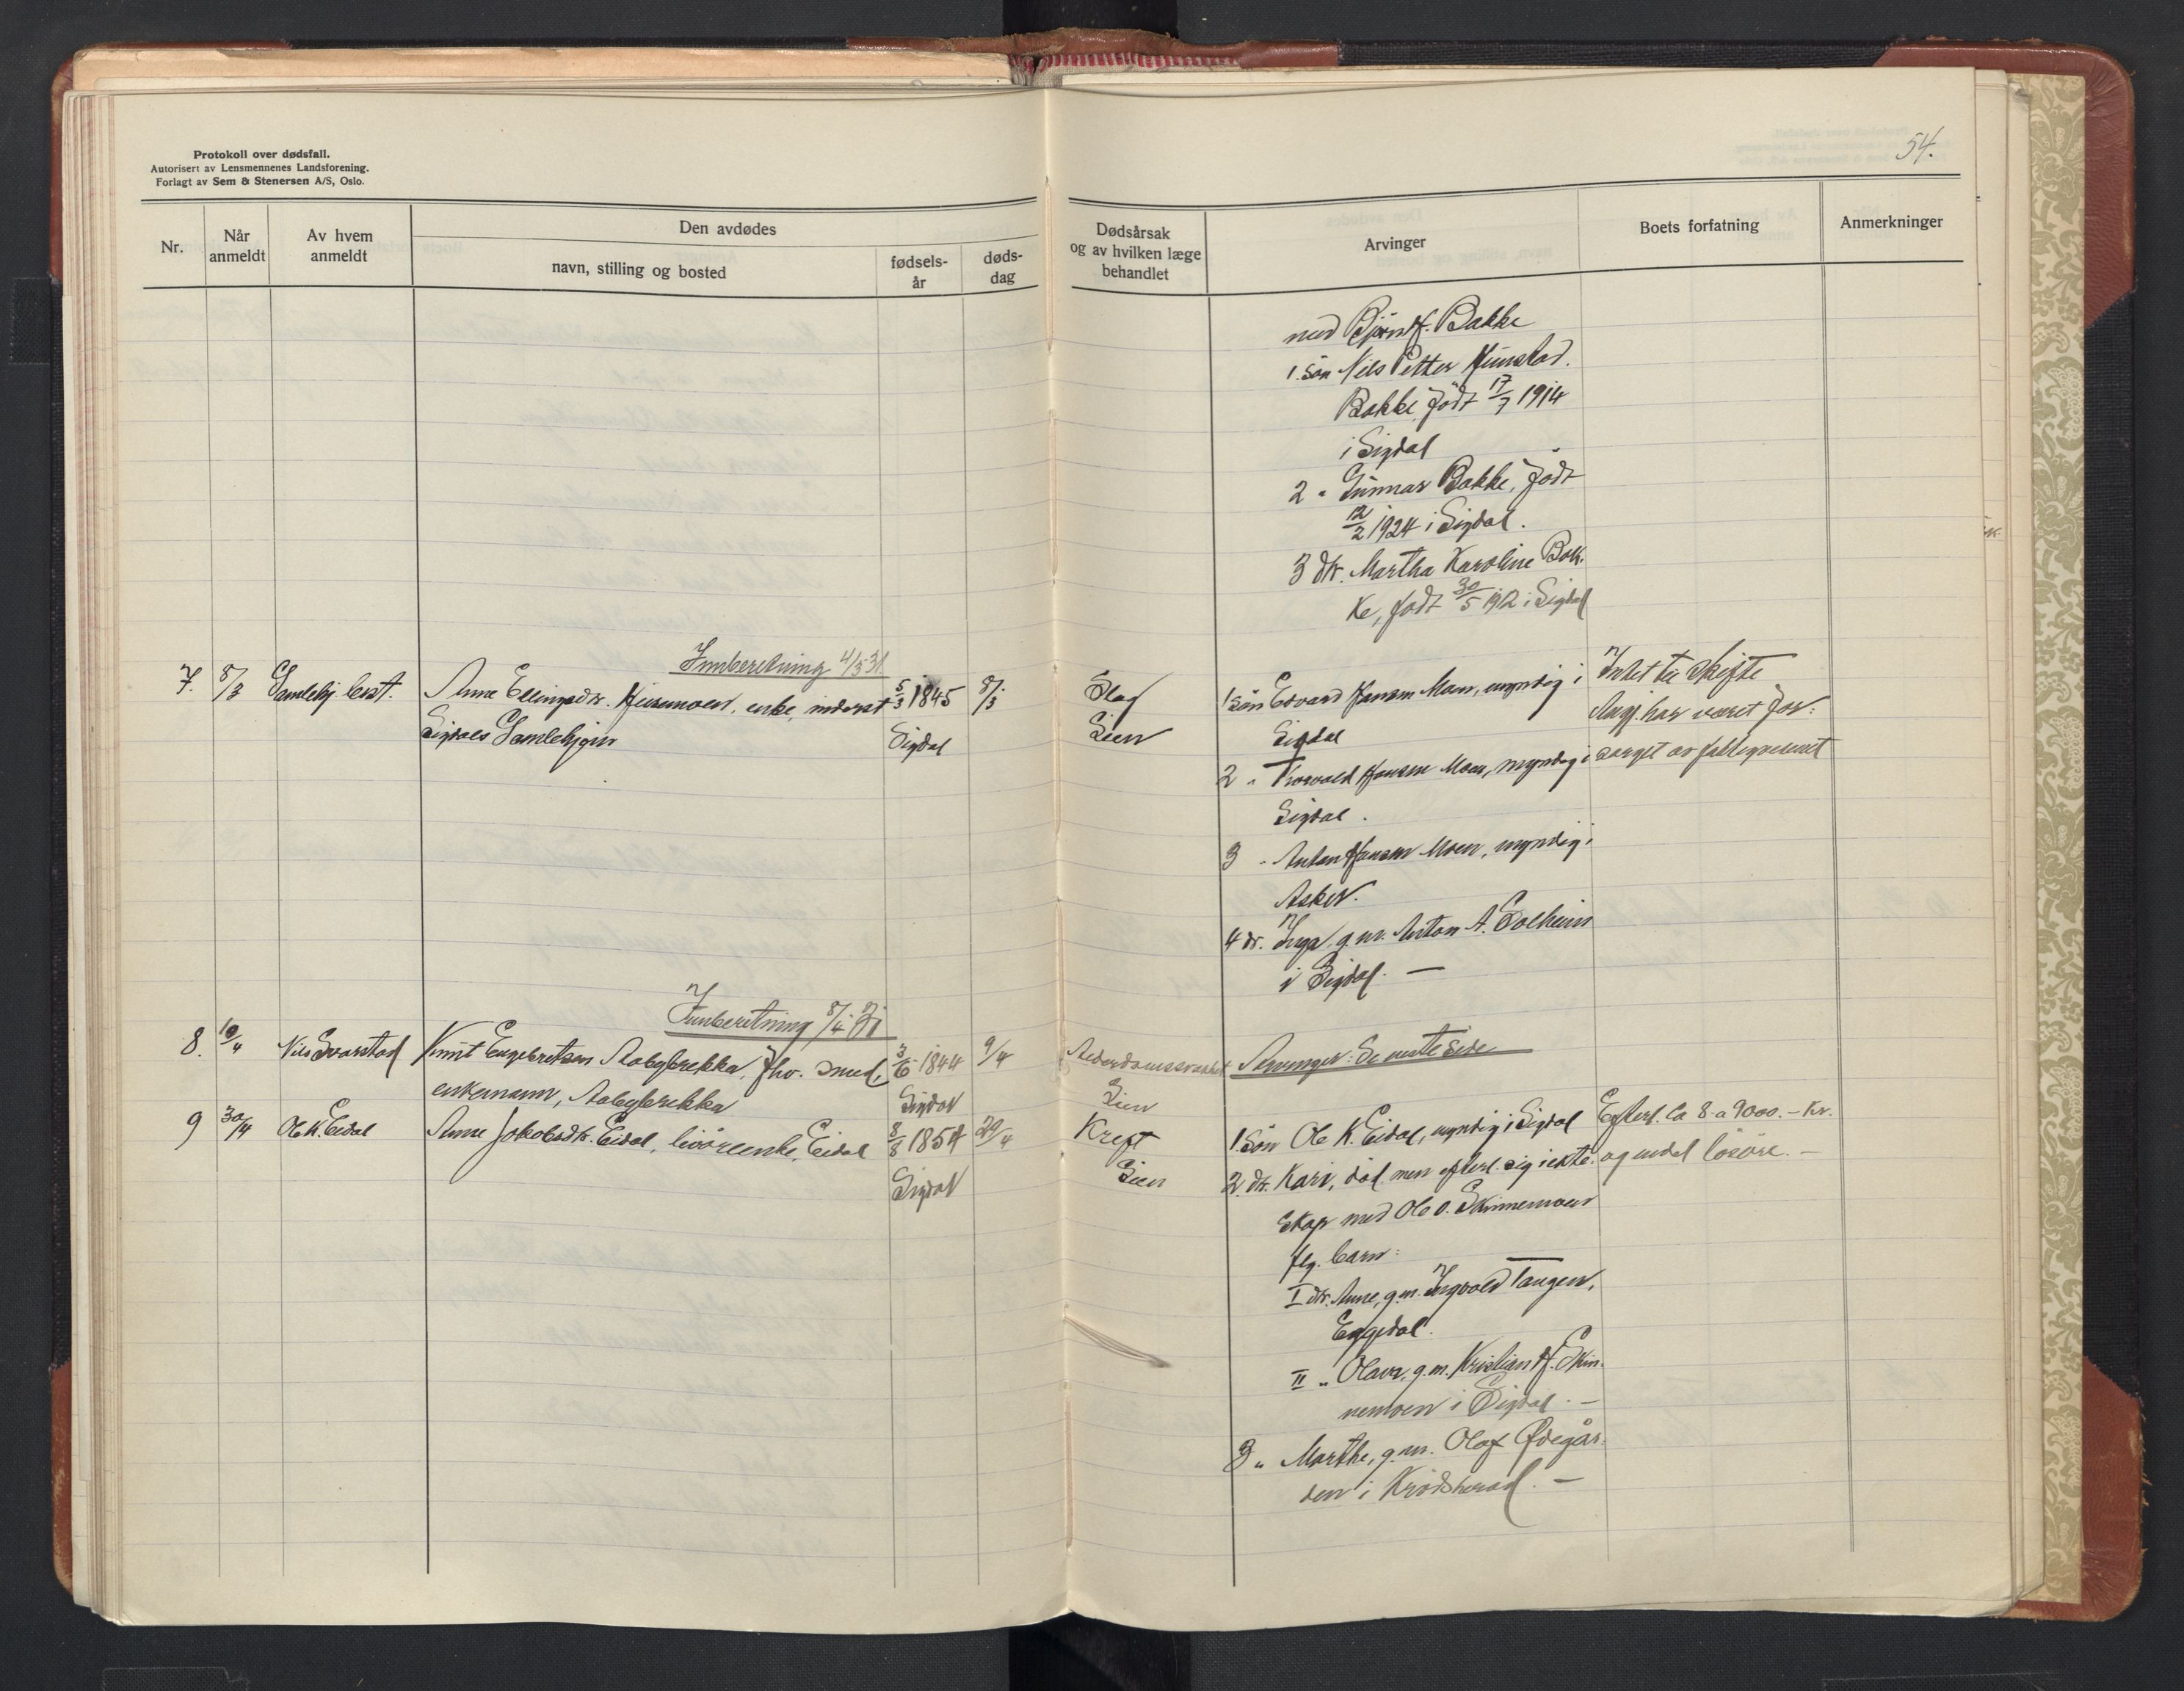 Protokoll over dødsfall.
Autorisert av Lensmennenes Landsforening.
Forlagt av Sem & Stenersen A/S, Oslo.
54.
Nr.
Når anmeldt
Av hvem anmeldt
Den avdødes
navn, stilling og bosted
fødsels-år
døds-dag
Dødsårsak og av hvilken læge behandlet
Arvinger
Boets forfatning
Anmerkninger
med Björn H. Bakke
1. sön Nils Petter
Bakke, född 17/7 1914
i Sigdal
2 " Gunnar Bakke, född
12/2 1924 i Sigdal.
3 dtr. Martha Karoline Bak-
ke, född 30/5 1912 i Sigdal
Innberetning 4/5 31
7. 8/3 Gamlehj. best. Anne Ellingsdtr. enke, inderst 5/3 1845 8/3
Sigdals Gamlehjem Sigdal
Slag
Lien
1 sön Edvard Hansen Moen, myndig i
Sigdal
2 " Torvald Hansen Moen, myndig i
Sigdal.
3 " Anton Hansen Moen, myndig i
Asker.
4 dr. Inga, g. m. Anton A. Solheim
i Sigdal. —
Intet til skifte
Avgj. har været for-
sorget av fattigvesenet
Innberetning 8/4 31
8. 10/4 Nils Svarstad Knut Engebretsen Aabybrekka, fhv. smed, 3/6 1844 9/4
enkemann, Aabybrekka Sigdal
Alderdomssvakhet
Lien
Arvinger: Se neste side
9 30/4 Ole K. Eidal Anne Jakobsdtr. Eidal, livöreenke, Eidal 8/8 1854 29/4
Sigdal
Kreft
Lien
1. Sön Ole K. Eidal, myndig i Sigdal
2. dtr. Kari, död men efterl. sig i ekte-
skap med Ole O. Skinnemoen
flg. barn:
I dtr. Anne, g. m. Ingvald Tangen,
Eggedal.
II " Olava, g. m. Kristian H. Skin-
nemoen i Sigdal. —
3 " Marthe, g. m. Olaf Ødegår-
den i Krödsherad. —
Efterl. ca 8 a 9000.- kr.
og endel lösöre. —